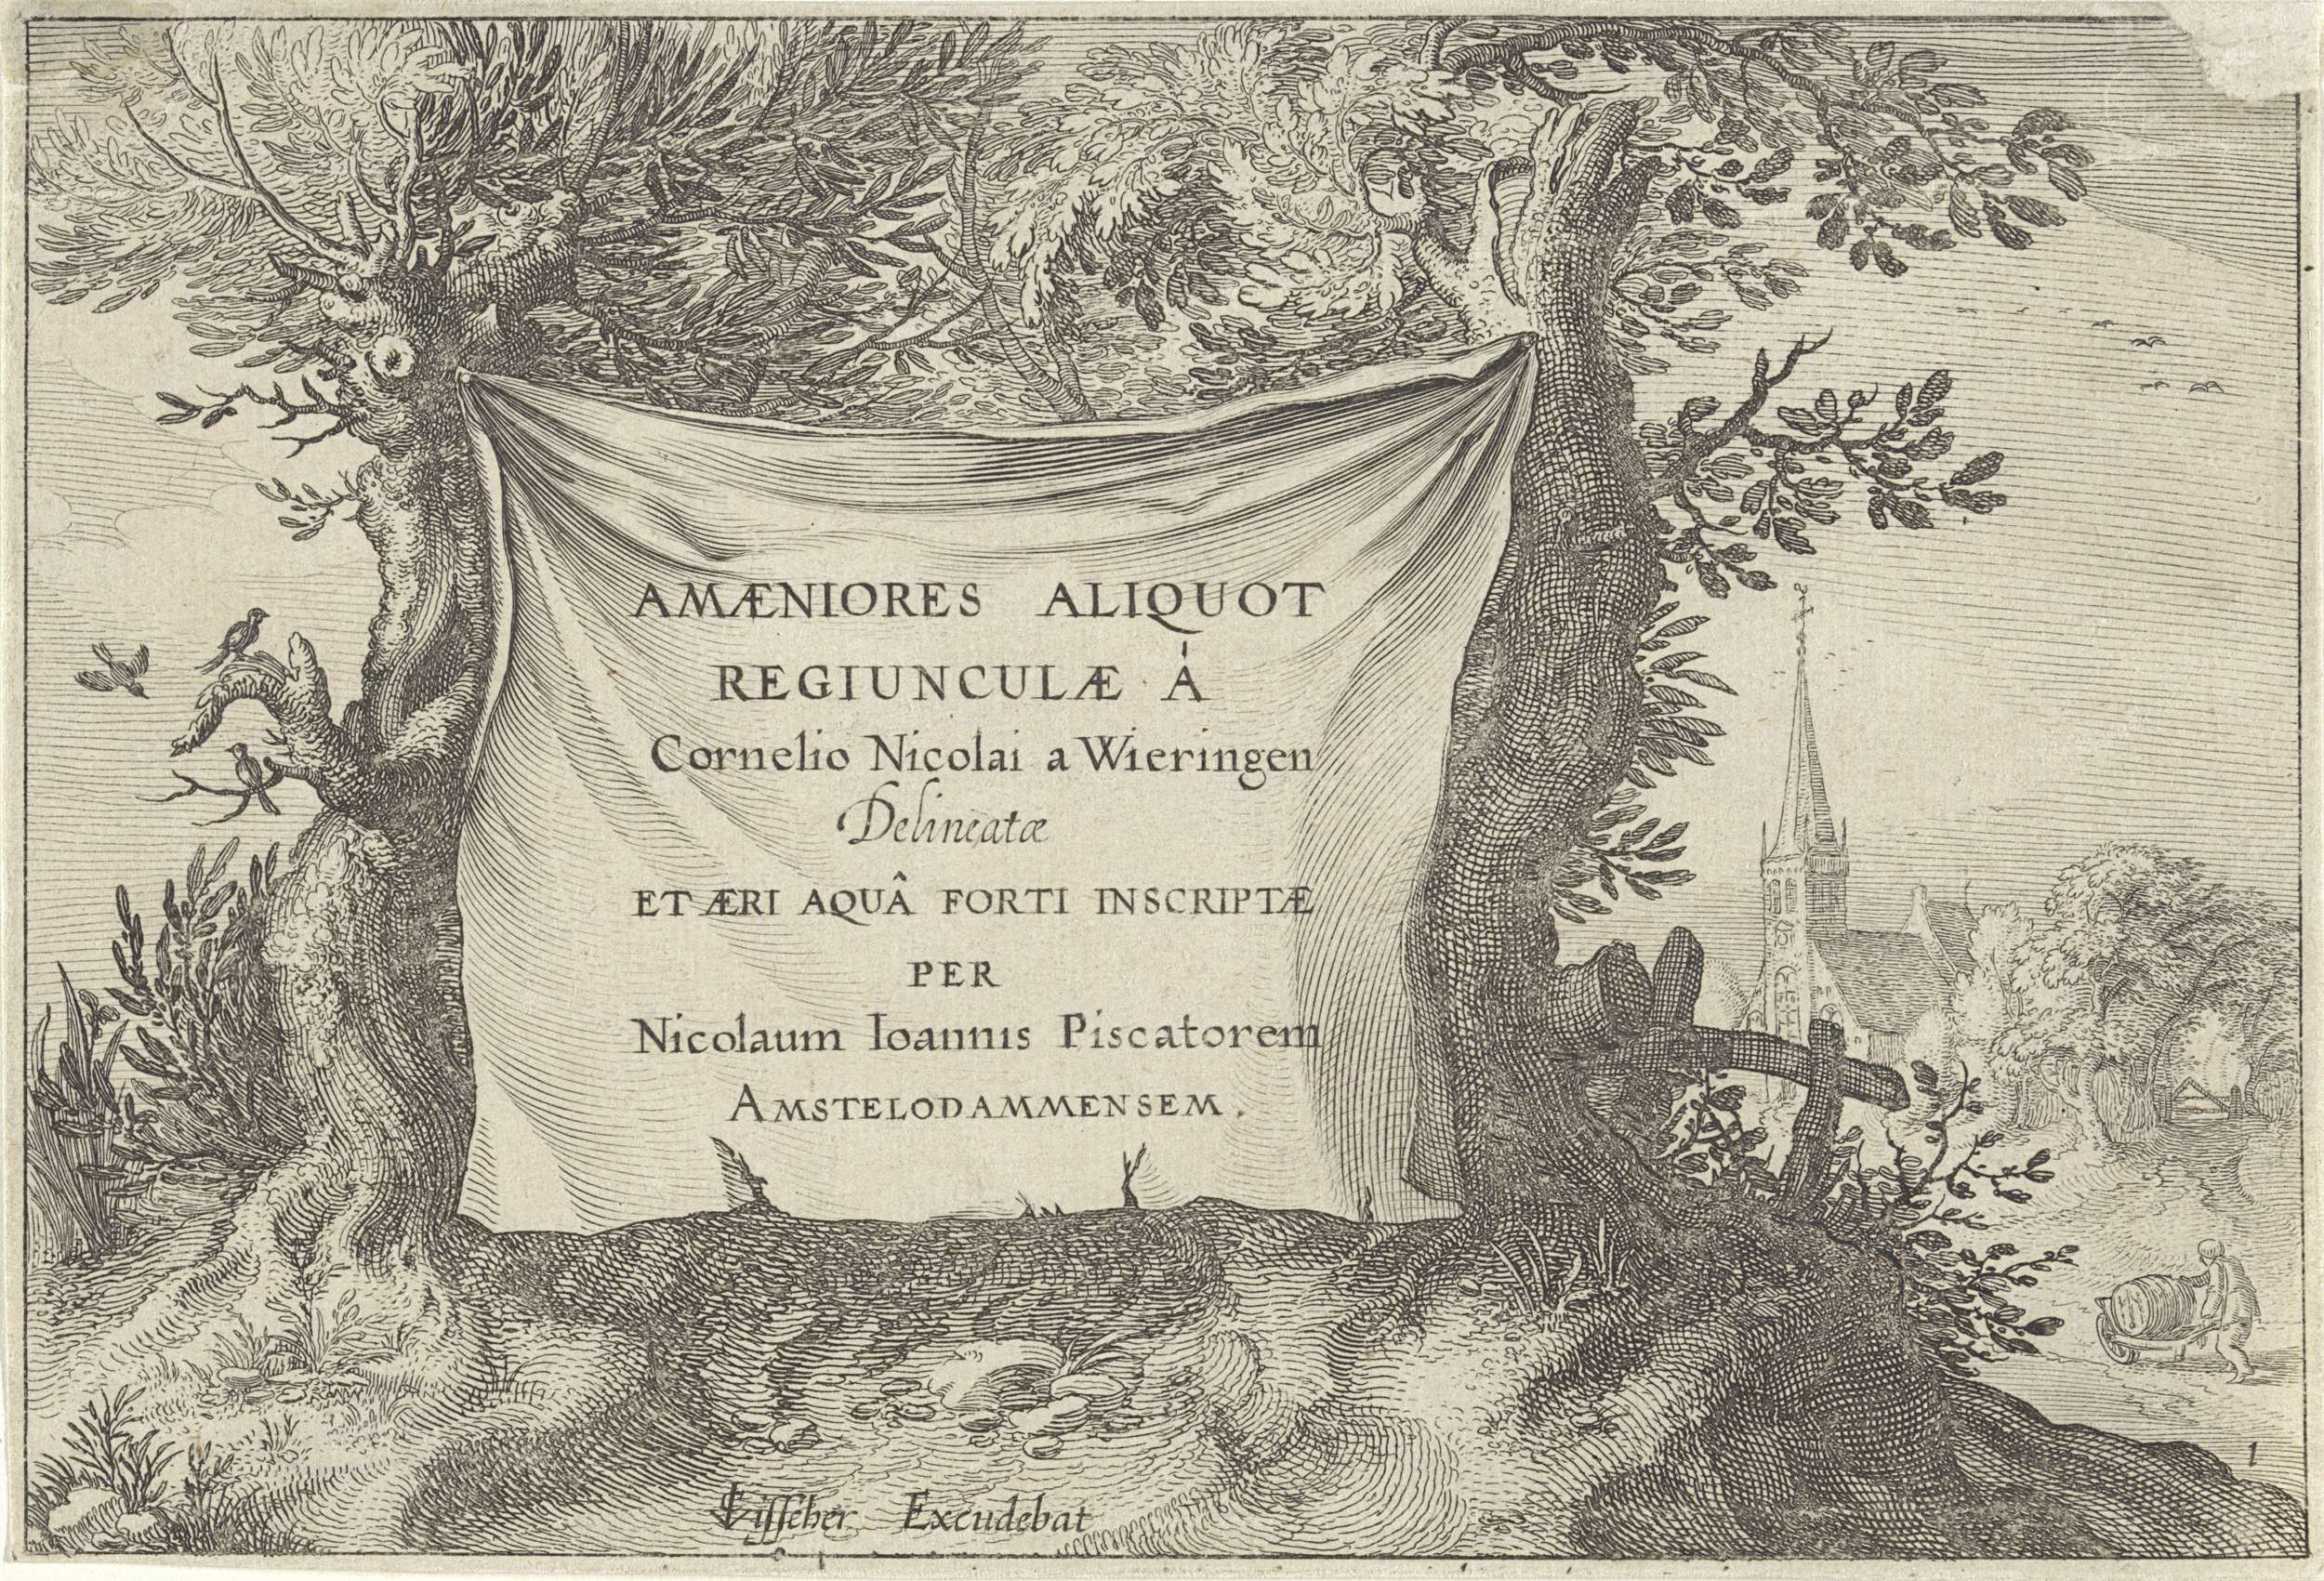 AMÆNIORES ALIQUOT
REGIUNCULÆ Á
Cornelio Nicolai a Wieringen
Delineatæ
ET ÆRI AQUÂ FORTI INSCRIPTÆ
PER
Nicolaum Ioannis Piscatorem
AMSTELODAMMENSEM.
1
Visscher Excudebat